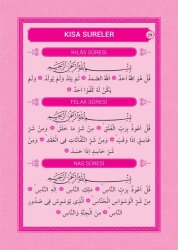 KISA SURELER
İHLÂS SÛRESİ
بِسْمِ اللّٰهِ الرَّحْمٰنِ الرَّحِيمِ
قُلْ هُوَ اللّٰهُ اَحَدٌ ۞ اَللّٰهُ الصَّمَدُ ۞ لَمْ يَلِدْ وَلَمْ يُولَدْ ۞ وَلَمْ
يَكُنْ لَهُ كُفُوًا اَحَدٌ
FELAK SÛRESİ
بِسْمِ اللّٰهِ الرَّحْمٰنِ الرَّحِيمِ
قُلْ اَعُوذُ بِرَبِّ الْفَلَقِ ۞ مِنْ شَرِّ مَا خَلَقَ ۞ وَمِنْ شَرِّ
غَاسِقٍ اِذَا وَقَبَ ۞ وَمِنْ شَرِّ النَّفَّاثَاتِ فِي الْعُقَدِ ۞ وَمِنْ
شَرِّ حَاسِدٍ اِذَا حَسَدَ
NAS SÛRESİ
بِسْمِ اللّٰهِ الرَّحْمٰنِ الرَّحِيمِ
قُلْ اَعُوذُ بِرَبِّ النَّاسِ ۞ مَلِكِ النَّاسِ ۞ اِلٰهِ النَّاسِ ۞
مِنْ شَرِّ الْوَسْوَاسِ الْخَنَّاسِ ۞ اَلَّذِي يُوَسْوِسُ فِي صُدُورِ
النَّاسِ ۞ مِنَ الْجِنَّةِ وَالنَّاسِ